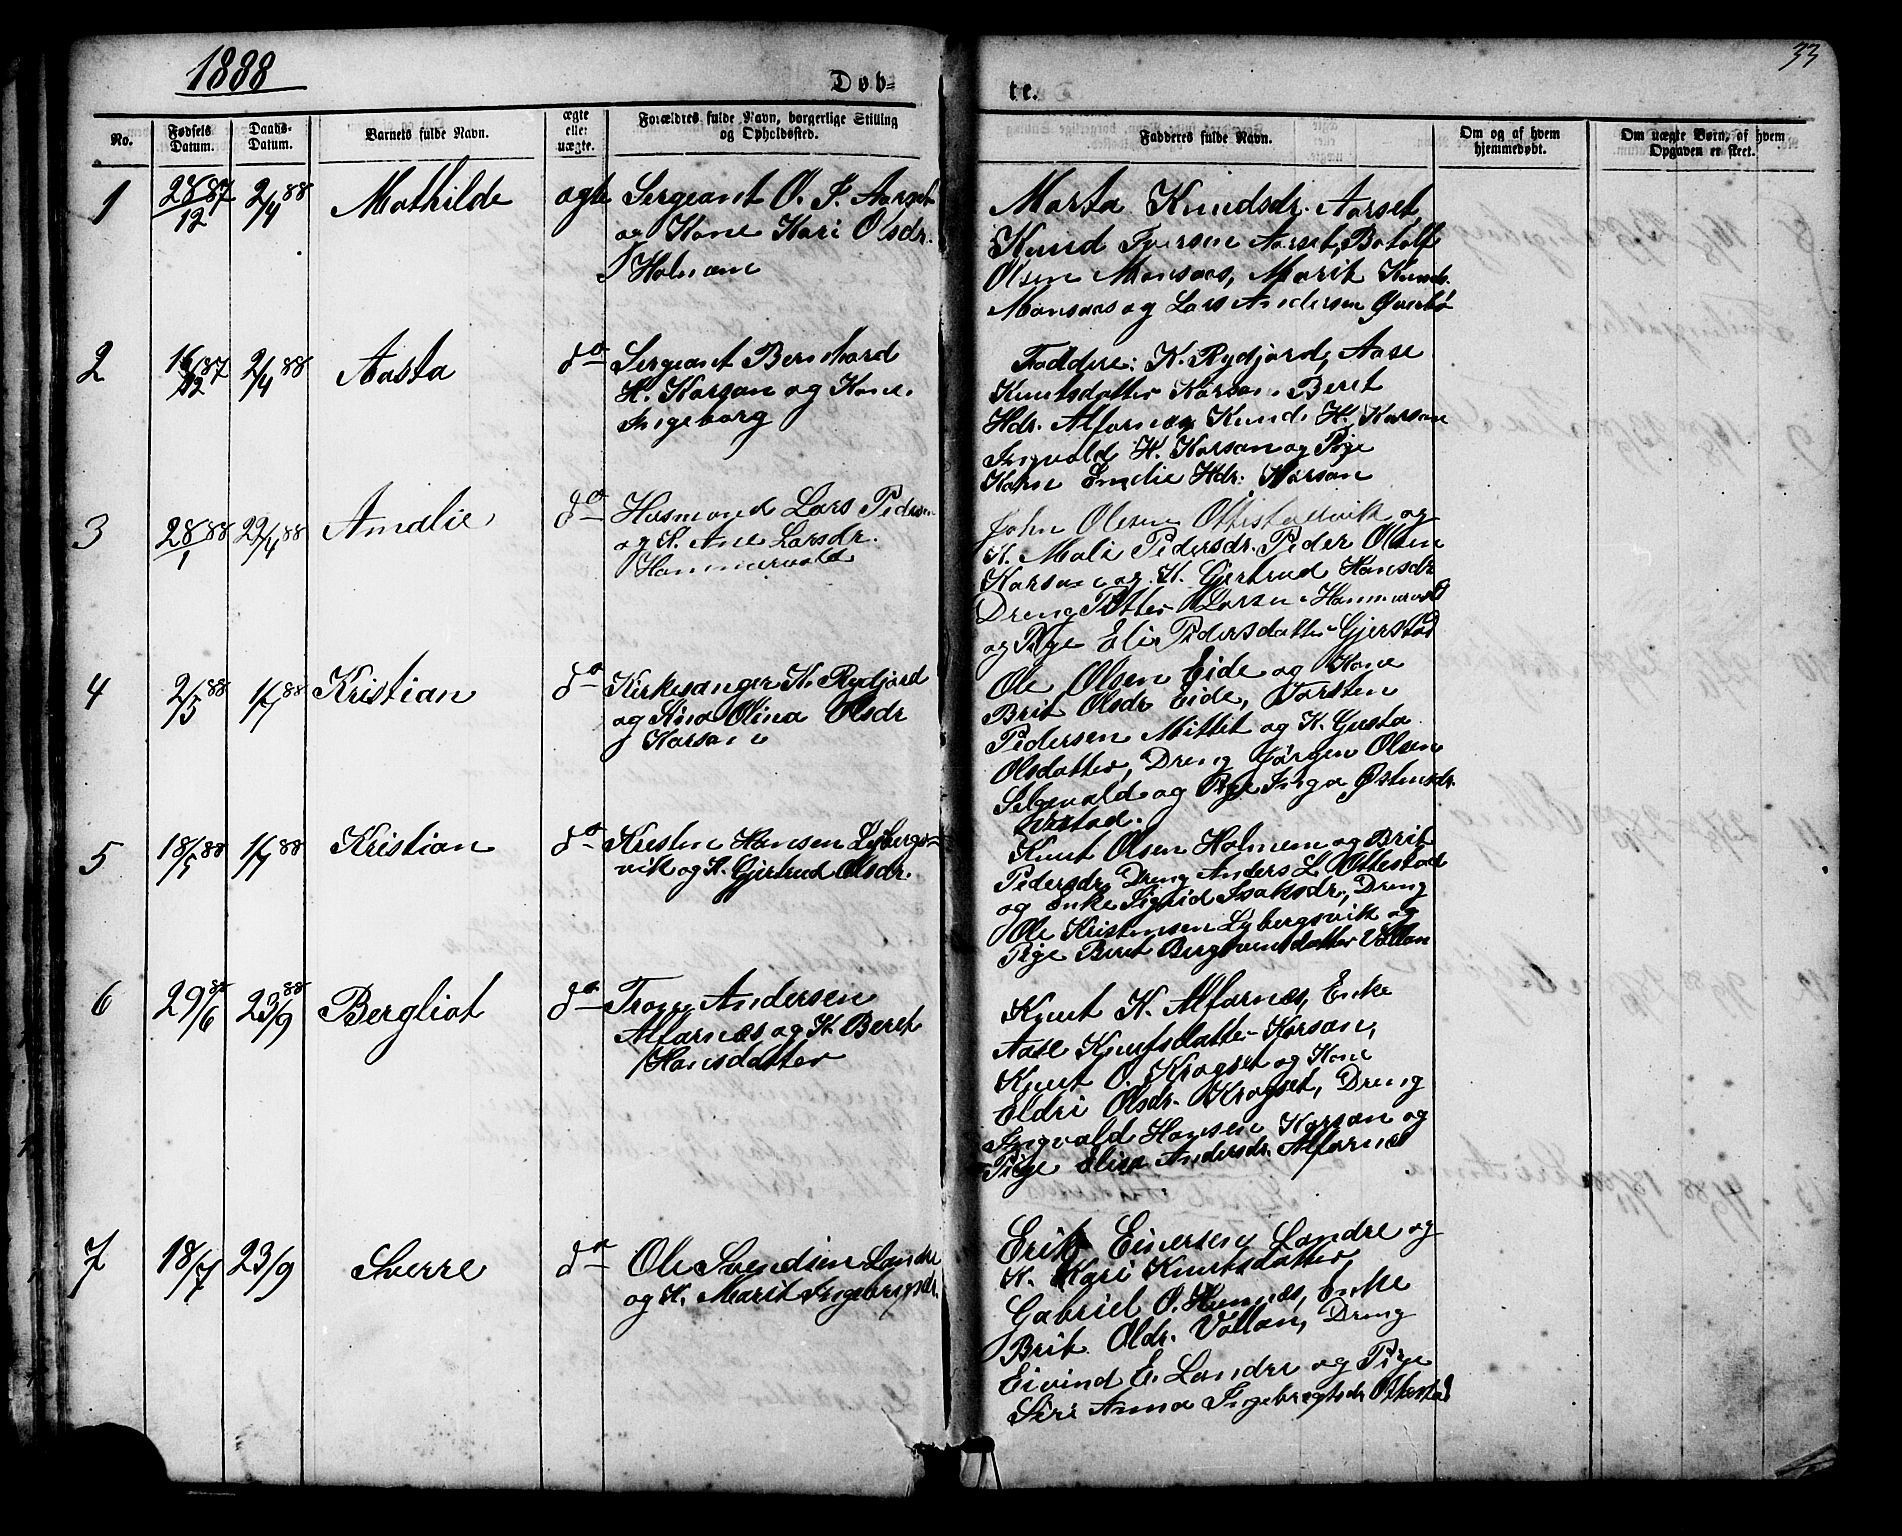 1888
33
Døb-
te.
No.
Fødsels Datum.
Daabs-Datum.
Barnets fulde Navn.
ægte eller uægte.
Forældres fulde Navn, borgerlige Stilling og Opholdssted.
Fadderes fulde Navn.
Om og af hvem hjemmedøbt.
Om uægte Børn, af hvem Opgaven er skeet.
1
28/12 87
2/4 88
Mathilde
ægte
Sergeant O. I. Aarset
og Kone Kari Olsdr.
Holmem
Marta Knudsdr. Aarset,
Knud Iversen Aarset, Botolf
Olsen Monsaas, Marit Knuds.
Monsaas og Lars Andersen Øverbø
2
16/12 87
2/4 88
Aasta
do
Sergeant Bernhard
H. Korsan og Kone
Ingeborg
Faddere: K. Rydjord, Aase
Knutsdatter Korsan, Beret
Hdr. Alfarnæs Knud H. Korsan
Ingvald H. Korsan og Pige
Karen Emilie Hdr. Korsan
3
28/1 88
22/4 88
Amalie
do
Husmand Lars Peders
og K. Ane Larsdr.
Hammervold
John Olesen Ottestadvik og
K. Mali Pedersdr. Peder Olsen
Korsan og K. Gjertrud Hansdr
Dreng Petter Larsen Hammervold
og Pige Eli Pedersdatter Gjerstad
4
2/5 88
1/7 88
Kristian
do
Kirkesanger K. Rydjord
og Kone Olina Olsdr
Korsan
Ole Olsen Eide og Kone
Brit Olsdr Eide, Torsten
Pedersen Mittet og K. Gusta
Olsdatter, Dreng Jørgen Olsen
og Pige Inga Østensdr.
5
18/5 88
1/7 88
Kristian
do
Kresten Hansen Lybergs-
vik og K. Gjertrud Olsdr.
Knut Olsen Holmem og Brit
Pedersdr, Dreng Anders L. Ottestad
og Enke Sigrid Isaksdr, Dreng
Ole Kristensen Lybergsvik og
Pige Beret Bergsvendsdatter Vollan
6
29/6 88
23/9 88
Bergliot
do
Trond Andersen
Alfarnæs og K. Beret
Hansdatter
Knut K. Alfarnæs, Enke
Aase Knutsdatter Korsan,
Knut O. Kragset og Kone
Eldri Olsdr. Kragset, Dreng
Ingvald Hansen Korsan og
Pige Elisa Andersdr. Alfarnæs
7
18/7
23/9
Sverre
do
Ole Svendsen Landre
og K. Marit Ingebrigtsdr.
Erik Einersen Landre og
K. Kari Knutsdatter
Gabriel O. Humnæs, Enke
Brit Oldr. Vollan, Dreng
Eivind E. Landre og Pige
Siri Anna Ingebregtsdr Ottestad